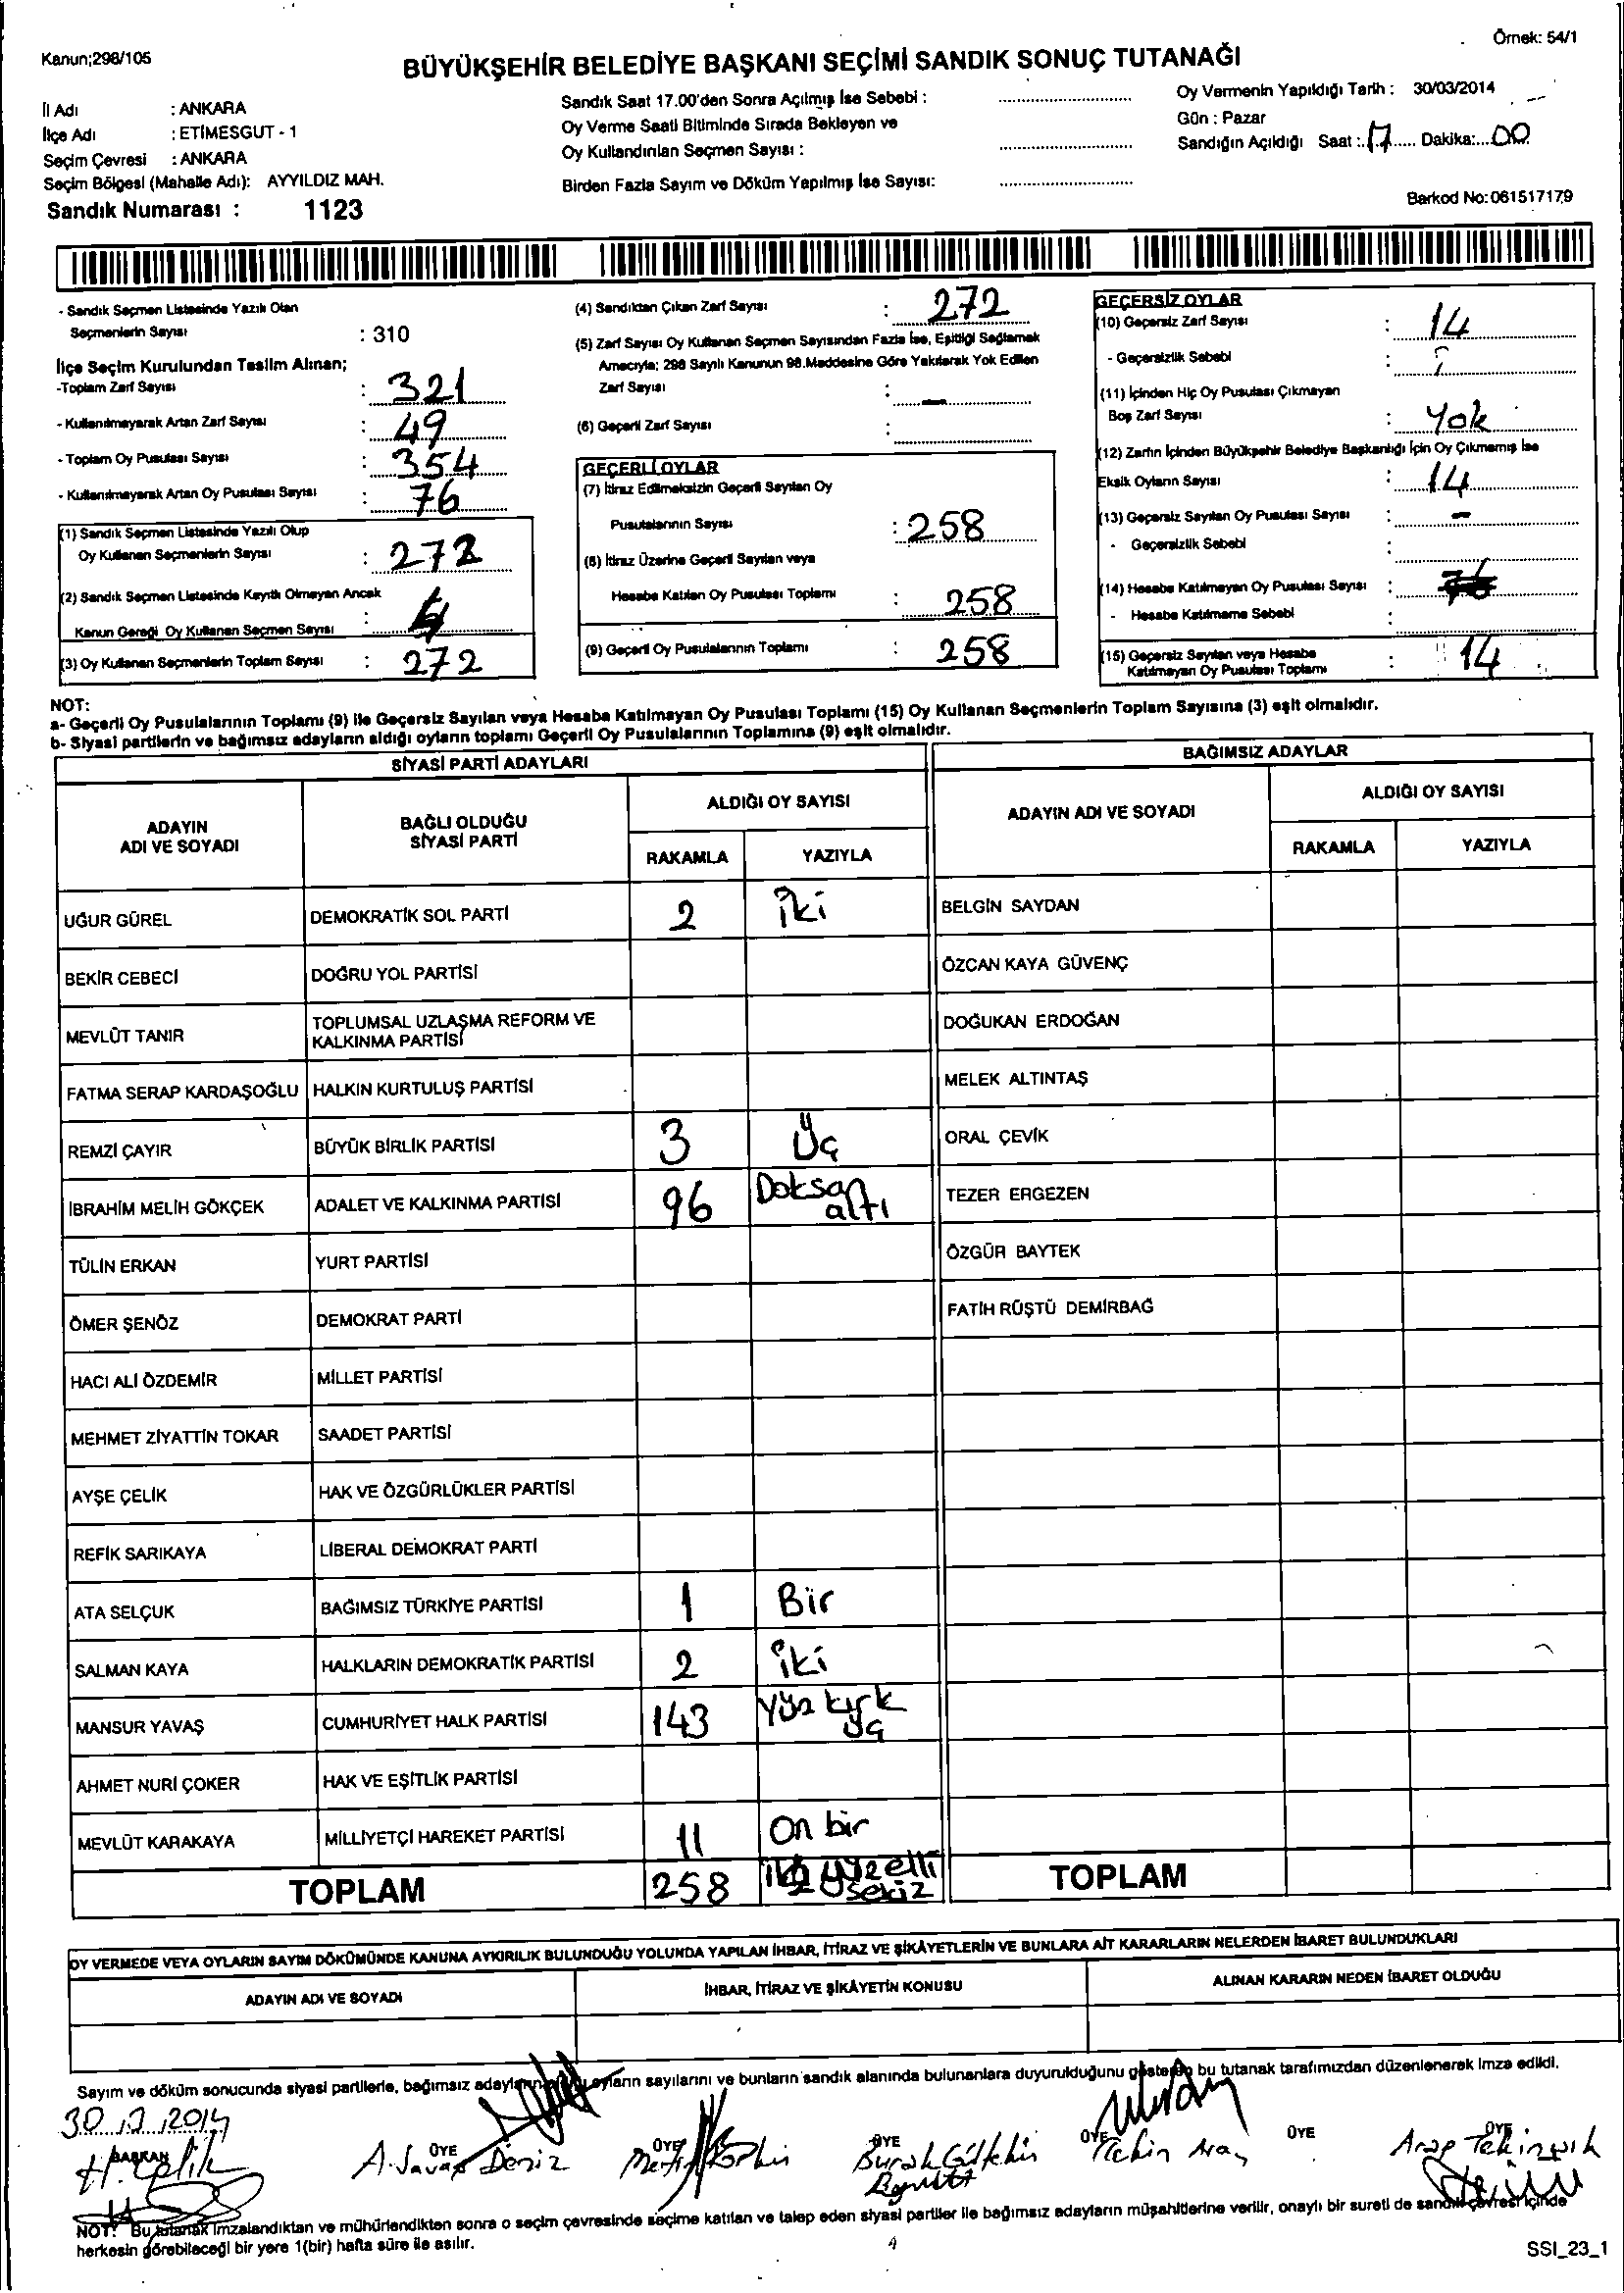 Kanun;298/105
Örnek: 54/1
BÜYÜKŞEHİR BELEDİYE BAŞKANI SEÇİMİ SANDIK SONUÇ TUTANAĞI
İl Adı : ANKARA
İlçe Adı : ETİMESGUT - 1
Seçim Çevresi : ANKARA
Seçim Bölgesi (Mahalle Adı): AYYILDIZ MAH.
Sandık Numarası : 1123
Sandık Saat 17.00'den Sonra Açılmış İse Sebebi :
Oy Verme Saati Bitiminde Sırada Bekleyen ve
Oy Kullandırılan Seçmen Sayısı :
Birden Fazla Sayım ve Döküm Yapılmış İse Sayısı:
Oy Vermenin Yapıldığı Tarih : 30/03/2014
Gün : Pazar
Sandığın Açıldığı Saat : 17 Dakika: 00
Barkod No:061517179
- Sandık Seçmen Listesinde Yazılı Olan
Seçmenlerin Sayısı : 310
İlçe Seçim Kurulundan Teslim Alınan;
-Toplam Zarf Sayısı : 321
- Kullanılmayarak Artan Zarf Sayısı : 49
- Toplam Oy Pusulası Sayısı : 354
- Kullanılmayarak Artan Oy Pusulası Sayısı : 76
(1) Sandık Seçmen Listesinde Yazılı Olup
Oy Kullanan Seçmenlerin Sayısı : 272
(2) Sandık Seçmen Listesinde Kayıtlı Olmayan Ancak
Kanun Gereği Oy Kullanan Seçmen Sayısı :
(3) Oy Kullanan Seçmenlerin Toplam Sayısı : 272
(4) Sandıktan Çıkan Zarf Sayısı : 272
(5) Zarf Sayısı Oy Kullanan Seçmen Sayısından Fazla İse, Eşitliği Sağlamak
Amacıyla; 298 Sayılı Kanunun 98.Maddesine Göre Yakılarak Yok Edilen
Zarf Sayısı : -
(6) Geçerli Zarf Sayısı :
GEÇERLİ OYLAR
(7) İtiraz Edilmeksizin Geçerli Sayılan Oy
Pusulalarının Sayısı : 258
(8) İtiraz Üzerine Geçerli Sayılan veya
Hesaba Katılan Oy Pusulası Toplamı : 258
(9) Geçerli Oy Pusulalarının Toplamı : 258
GEÇERSİZ OYLAR
(10) Geçersiz Zarf Sayısı : 14
- Geçersizlik Sebebi :
(11) İçinden Hiç Oy Pusulası Çıkmayan
Boş Zarf Sayısı : Yok
(12) Zarfın İçinden Büyükşehir Belediye Başkanlığı İçin Oy Çıkmamış İse
Eksik Oyların Sayısı : 14
(13) Geçersiz Sayılan Oy Pusulası Sayısı : -
- Geçersizlik Sebebi :
(14) Hesaba Katılmayan Oy Pusulası Sayısı :
- Hesaba Katılmama Sebebi :
(15) Geçersiz Sayılan veya Hesaba
Katılmayan Oy Pusulası Toplamı : 14
NOT:
a- Geçerli Oy Pusulalarının Toplamı (9) ile Geçersiz Sayılan veya Hesaba Katılmayan Oy Pusulası Toplamı (15) Oy Kullanan Seçmenlerin Toplam Sayısına (3) eşit olmalıdır.
b- Siyasi partilerin ve bağımsız adayların aldığı oyların toplamı Geçerli Oy Pusulalarının Toplamına (9) eşit olmalıdır.
SİYASİ PARTİ ADAYLARI
ADAYIN
ADI VE SOYADI
BAĞLI OLDUĞU
SİYASİ PARTİ
ALDIĞI OY SAYISI
RAKAMLA YAZIYLA
UĞUR GÜREL DEMOKRATİK SOL PARTİ 2 İki
BEKİR CEBECİ DOĞRU YOL PARTİSİ
MEVLÜT TANIR TOPLUMSAL UZLAŞMA REFORM VE
KALKINMA PARTİSİ
FATMA SERAP KARDAŞOĞLU HALKIN KURTULUŞ PARTİSİ
REMZİ ÇAYIR BÜYÜK BİRLİK PARTİSİ 3 Üç
İBRAHİM MELİH GÖKÇEK ADALET VE KALKINMA PARTİSİ 96 Doksan
altı
TÜLİN ERKAN YURT PARTİSİ
ÖMER ŞENÖZ DEMOKRAT PARTİ
HACI ALİ ÖZDEMİR MİLLET PARTİSİ
MEHMET ZİYATTİN TOKAR SAADET PARTİSİ
AYŞE ÇELİK HAK VE ÖZGÜRLÜKLER PARTİSİ
REFİK SARIKAYA LİBERAL DEMOKRAT PARTİ
ATA SELÇUK BAĞIMSIZ TÜRKİYE PARTİSİ 1 Bir
SALMAN KAYA HALKLARIN DEMOKRATİK PARTİSİ 2 İki
MANSUR YAVAŞ CUMHURİYET HALK PARTİSİ 143 Yüz kırk
üç
AHMET NURİ ÇOKER HAK VE EŞİTLİK PARTİSİ
MEVLÜT KARAKAYA MİLLİYETÇİ HAREKET PARTİSİ 11 On bir
TOPLAM 258 iki yüz elli
sekiz
BAĞIMSIZ ADAYLAR
ADAYIN ADI VE SOYADI
ALDIĞI OY SAYISI
RAKAMLA YAZIYLA
BELGİN SAYDAN
ÖZCAN KAYA GÜVENÇ
DOĞUKAN ERDOĞAN
MELEK ALTINTAŞ
ORAL ÇEVİK
TEZER ERGEZEN
ÖZGÜR BAYTEK
FATİH RÜŞTÜ DEMİRBAĞ
TOPLAM
OY VERMEDE VEYA OYLARIN SAYIM DÖKÜMÜNDE KANUNA AYKIRILIK BULUNDUĞU YOLUNDA YAPILAN İHBAR, İTİRAZ VE ŞİKÂYETLERİN VE BUNLARA AİT KARARLARIN NELERDEN İBARET BULUNDUKLARI
ADAYIN ADI VE SOYADI
İHBAR, İTİRAZ VE ŞİKÂYETİN KONUSU
ALINAN KARARIN NEDEN İBARET OLDUĞU
Sayım ve döküm sonucunda siyasi partilerle, bağımsız adayların oyların sayılarını ve bunların sandık alanında bulunanlara duyurulduğunu gösteren bu tutanak tarafımızdan düzenlenerek imza edildi.
2014
BAŞKAN ÜYE ÜYE ÜYE ÜYE ÜYE ÜYE
H. Çelik A. Savaş Deniz Burak Gültekin
NOT: Bu tutanak imzalandıktan ve mühürlendikten sonra o seçim çevresinde seçime katılan ve talep eden siyasi partiler ile bağımsız adayların müşahitlerine verilir, onaylı bir sureti de sandık çevresi içinde
herkesin görebileceği bir yere 1(bir) hafta süre ile asılır.
SSI_23_1